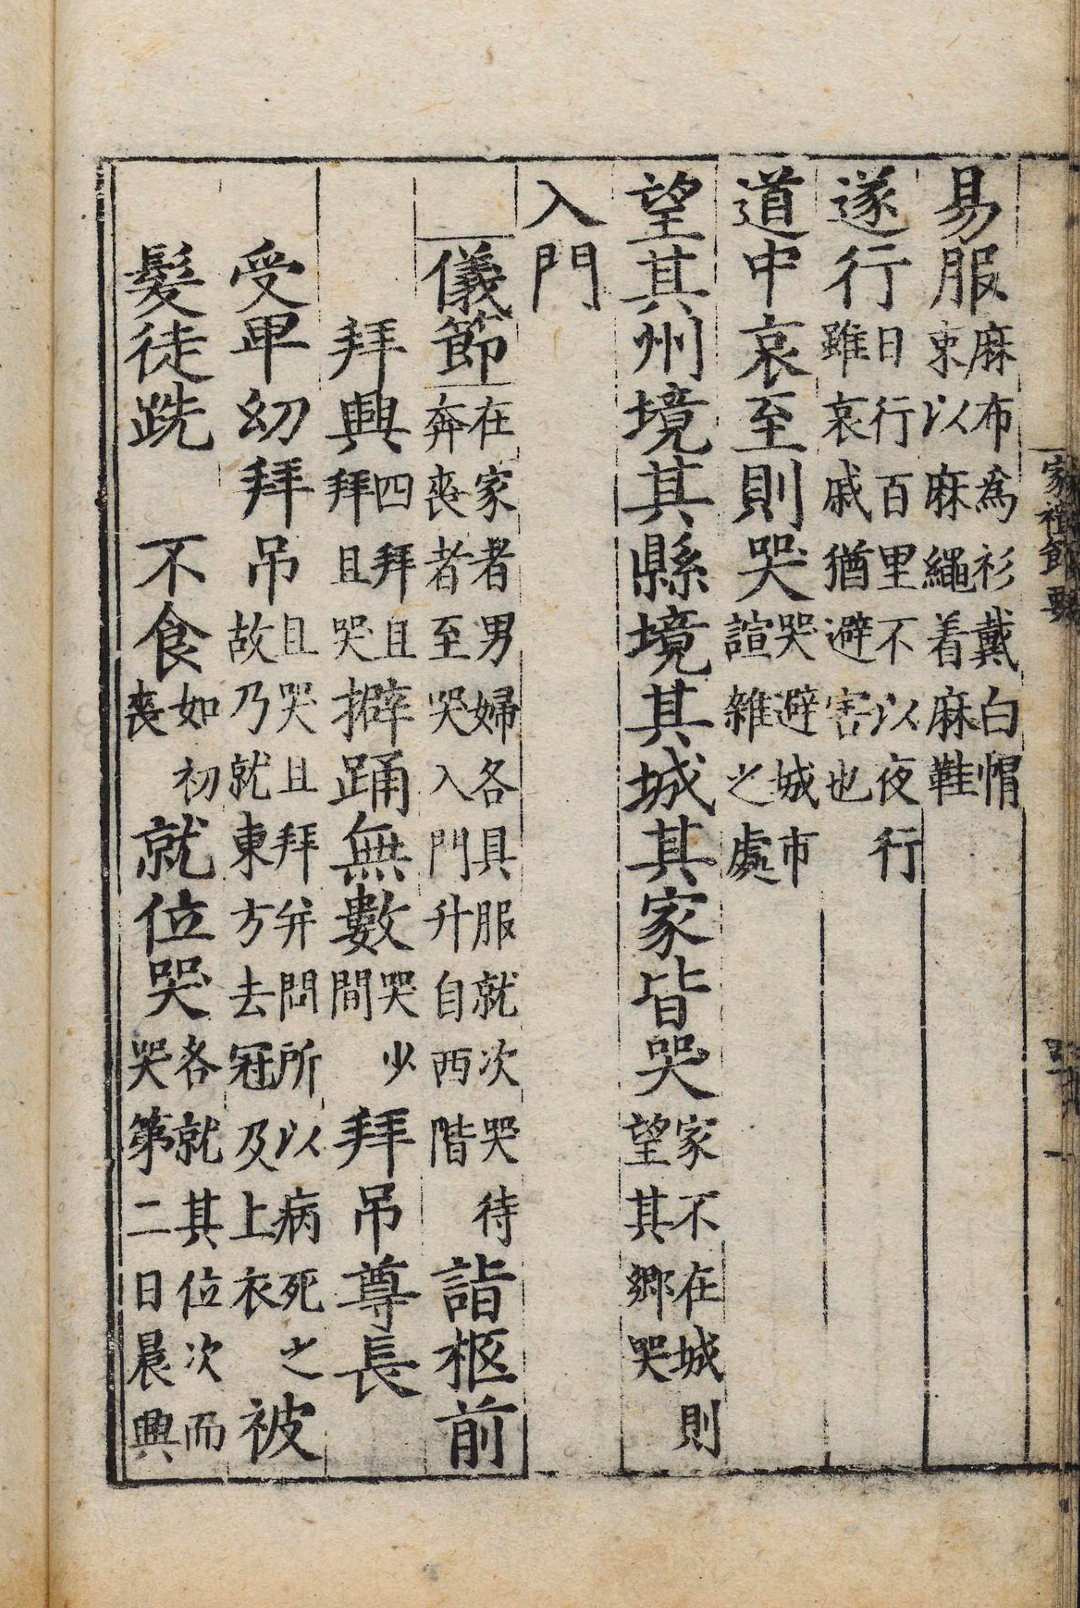 家禮節要
易服麻布為衫戴白帽束以麻繩着麻鞋
遂行日行百里不以夜行雖哀戚猶避害也
道中哀至則哭哭避城市諠雜之處
望其州境其縣境其城其家皆哭家不在城則望其鄉哭
入門
儀節在家者男婦各具服就次哭待奔喪者至哭入門升自西階詣柩前
拜興四拜且拜且哭擗踊無數哭少間拜吊尊長
受卑幼拜吊且哭且拜并問所以病死之故乃就東方去冠及上衣被
髮徒跣 不食如初喪就位哭各就其位次而哭第二日晨興